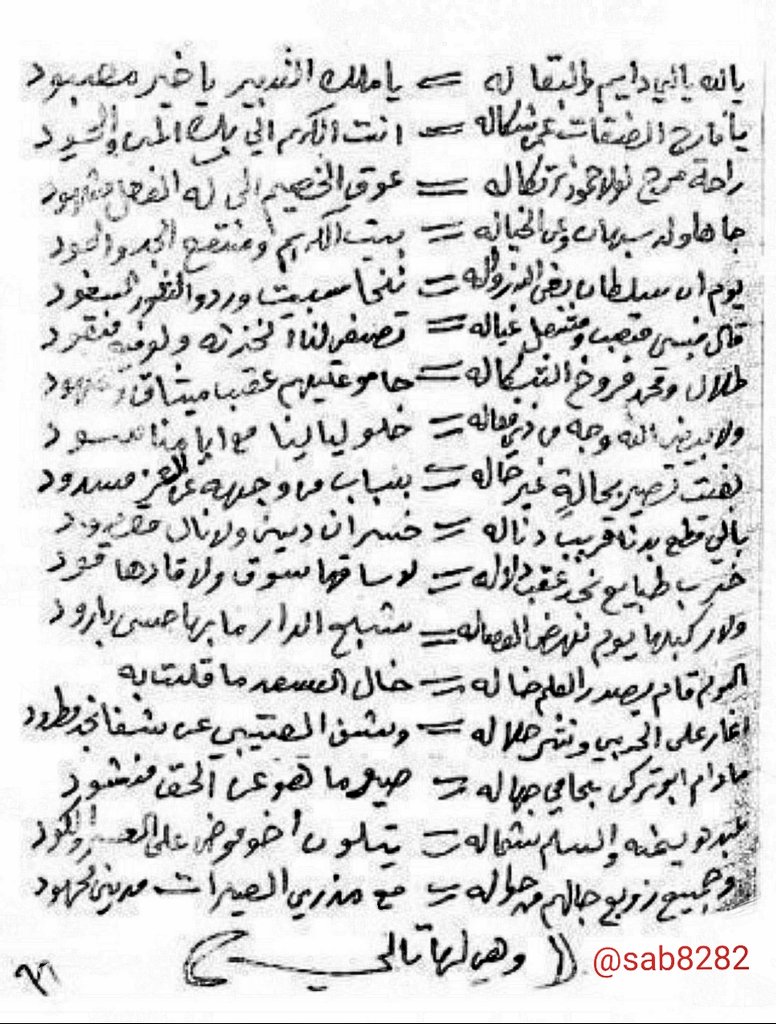 يا الله يالي دايم والبقا له = يا ملك التدبير يا خير معبود
يا فارج الضيقات عن شكاله = انت الكريم الي بك المن والجود
راحة تكاله = عوق الخصيم الى له الفعل مشهود
جا هاولد سبهان ولى الخيانه = بيت الكريم ومنتصح الجد والعود
يوم ان سلطان بغى النزواله = ننحا سبيت وردو النضور السعود
قال منيسى متعب ومشعل عياله = تصيف لنا انخذته ولو فيه منقود
طلال وقحم فروخ الشكاله = حامو عليهم عقب ميثاق وعهود
ولا يبيض الله وجه من ذي فعاله = خلو ليالينا مع ايامنا سود
بغت تصير بحالةٍ غير حاله = بنباب من وجهه عن العز مسدود
يالي قطع بدنا قريب دناله = خسران دين ولا نال مقصود
خرب طبايع نجد عقب دلاله = لا ساقها سوق ولا قادها قود
ولا ركبها يوم = شبلح الدار ما بها حسى بارود
اليوم قام بصدر العلم خاله = خال السعد ما قلت به
اغار على الحربي ونشر حلاله = وشق العتيبي عن شفا نجد مطرود
مادام ابو تركي يحامي جهاله = صيور ما هو عن الحق منشود
عبده يمينه والسلم شماله = يتلون اخو موضى على العسر والكود
وجميع زوبع جالهم من حواله = مع مذري العيرات مدبي لحهود
(( وهي لها تالي ))
٩٦
@sab8282